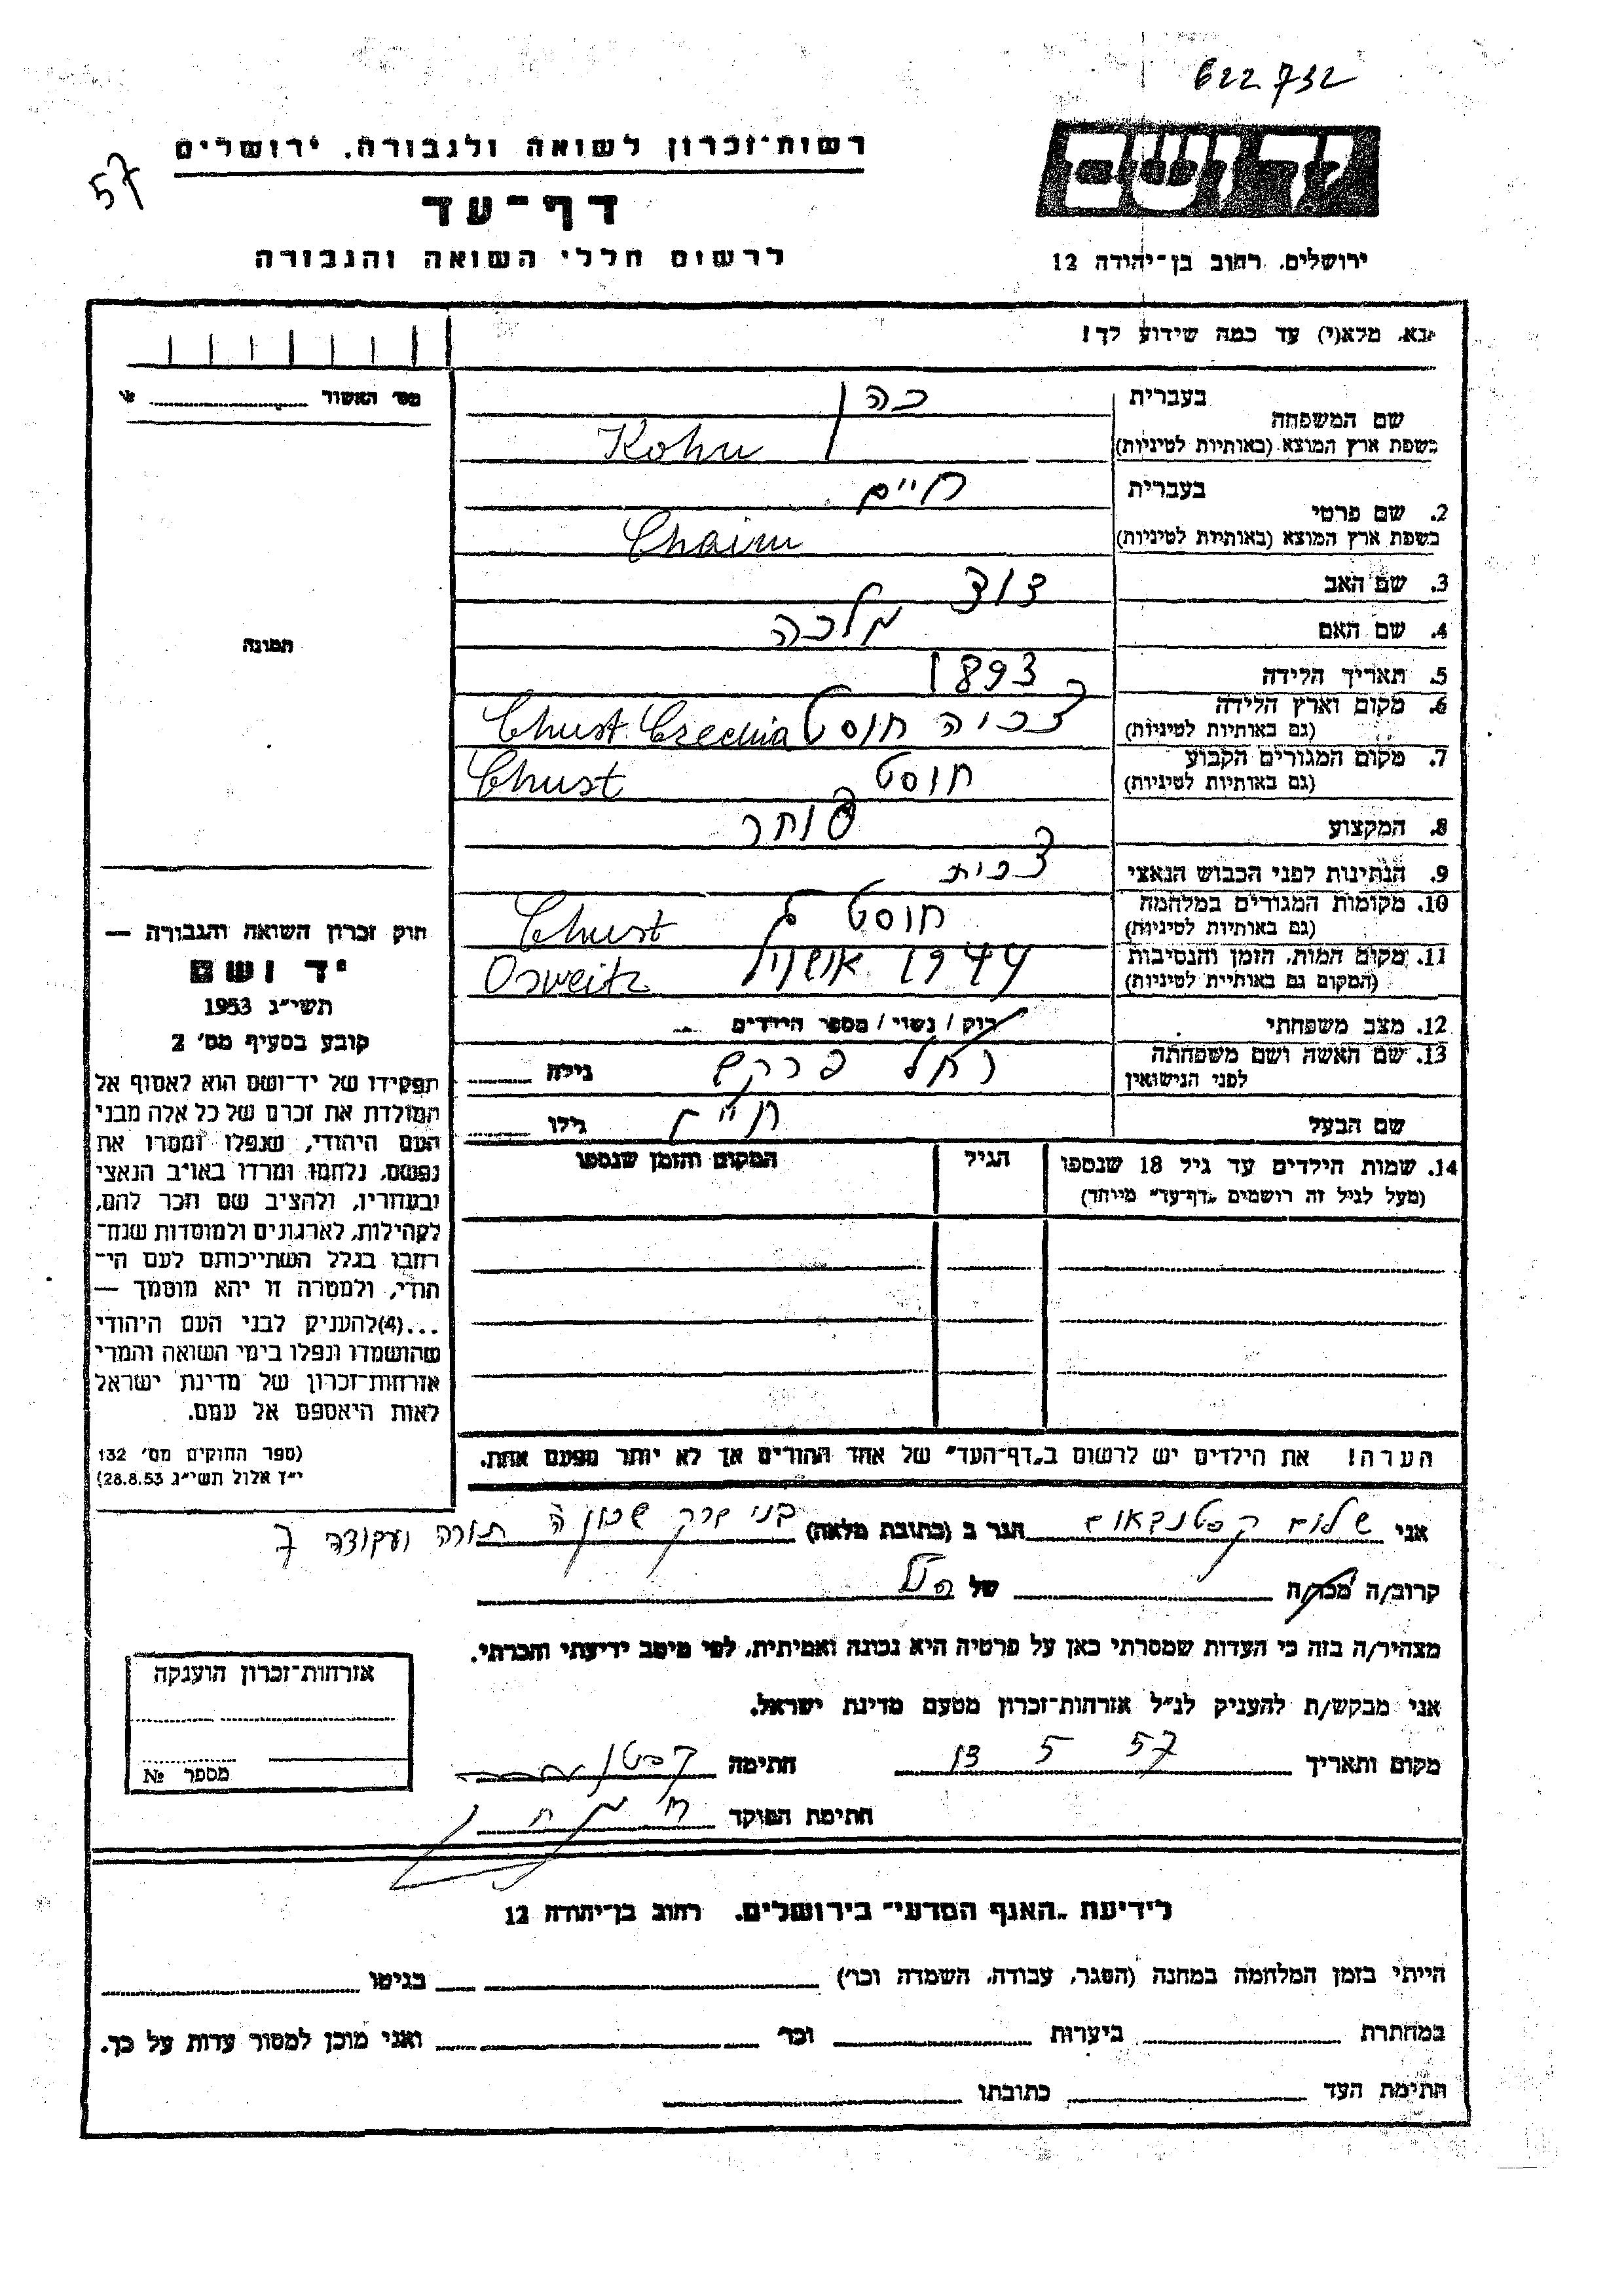 622732
57
רשות־זכרון לשואה ולגבורה, ירושלים
דף־עד
לרשום חללי השואה והגבורה
יד ושם
ירושלים, רחוב בן־יהודה 12
נא, מלא(י) עד כמה שידוע לך!
מס׳ האשור
שם המשפחה בעברית כהן
בשפת ארץ המוצא (באותיות לטיניות) Kohn
2. שם פרטי בעברית חיים
בשפת ארץ המוצא (באותיות לטיניות) Chaim
3. שם האב דוד
4. שם האם מלכה
5. תאריך הלידה 1893
6. מקום וארץ הלידה (גם באותיות לטיניות) צכיה חוסט Chust Czechia
7. מקום המגורים הקבוע (גם באותיות לטיניות) חוסט Chust
8. המקצוע סוחר
9. הנתינות לפני הכבוש הנאצי צכית
10. מקומות המגורים במלחמה (גם באותיות לטיניות) חוסט Chust
11. מקום המות, הזמן והנסיבות (המקום גם באותיית לטיניות) 1944 Osweitz
12. מצב משפחתי רוק / נשוי / מספר הילדים
13. שם האשה ושם משפחתה לפני הנישואין רחל גילה
שם הבעל גילו
14. שמות הילדים עד גיל 18 שנספו (מעל לגיל זה רושמים „דף־עד״ מיוחד) הגיל המקום והזמן שנספו
הערה! את הילדים יש לרשום ב„דף־העד״ של אחד ההורים אך לא יותר מפעם אחת.
תמונה
חוק זכרון השואה והגבורה —
יד ושם
תשי״ג 1953
קובע בסעיף מס׳ 2
תפקידו של יד־ושם הוא לאסוף אל
המולדת את זכרם של כל אלה מבני
העם היהודי, שנפלו ומסרו את
נפשם, נלחמו ומרדו באויב הנאצי
ובעוזריו, ולהציב שם וזכר להם,
לקהילות, לארגונים ולמוסדות שנח־
רבו בגלל השתייכותם לעם הי־
הודי, ולמטרה זו יהא מוסמך —
...(4) להעניק לבני העם היהודי
שהושמדו ונפלו בימי השואה והמרי
אזרחות־זכרון של מדינת ישראל
לאות היאספם אל עמם.
(ספר החוקים מס׳ 132
י״ז אלול תשי״ג 28.8.53)
אני שלום הגר ב (כתובת מלאה) בני ברק שכון ה תורה ועבודה 7
קרוב/ה מכר/ה של הנ״ל
מצהיר/ה בזה כי העדות שמסרתי כאן על פרטיה היא נכונה ואמיתית, לפי מיטב ידיעתי והכרתי.
אני מבקש/ת להעניק לנ״ל אזרחות־זכרון מטעם מדינת ישראל.
מקום ותאריך 13 5 57 חתימה
חתימת הפוקד
אזרחות־זכרון הוענקה
מספר №
לידיעת „האגף המדעי״ בירושלים, רחוב בן־יהודה 12
הייתי בזמן המלחמה במחנה (הסגר, עבודה, השמדה וכו׳) בגיטו
במחתרת ביערות וכו׳ ואני מוכן למסור עדות על כך.
חתימת העד כתובתו